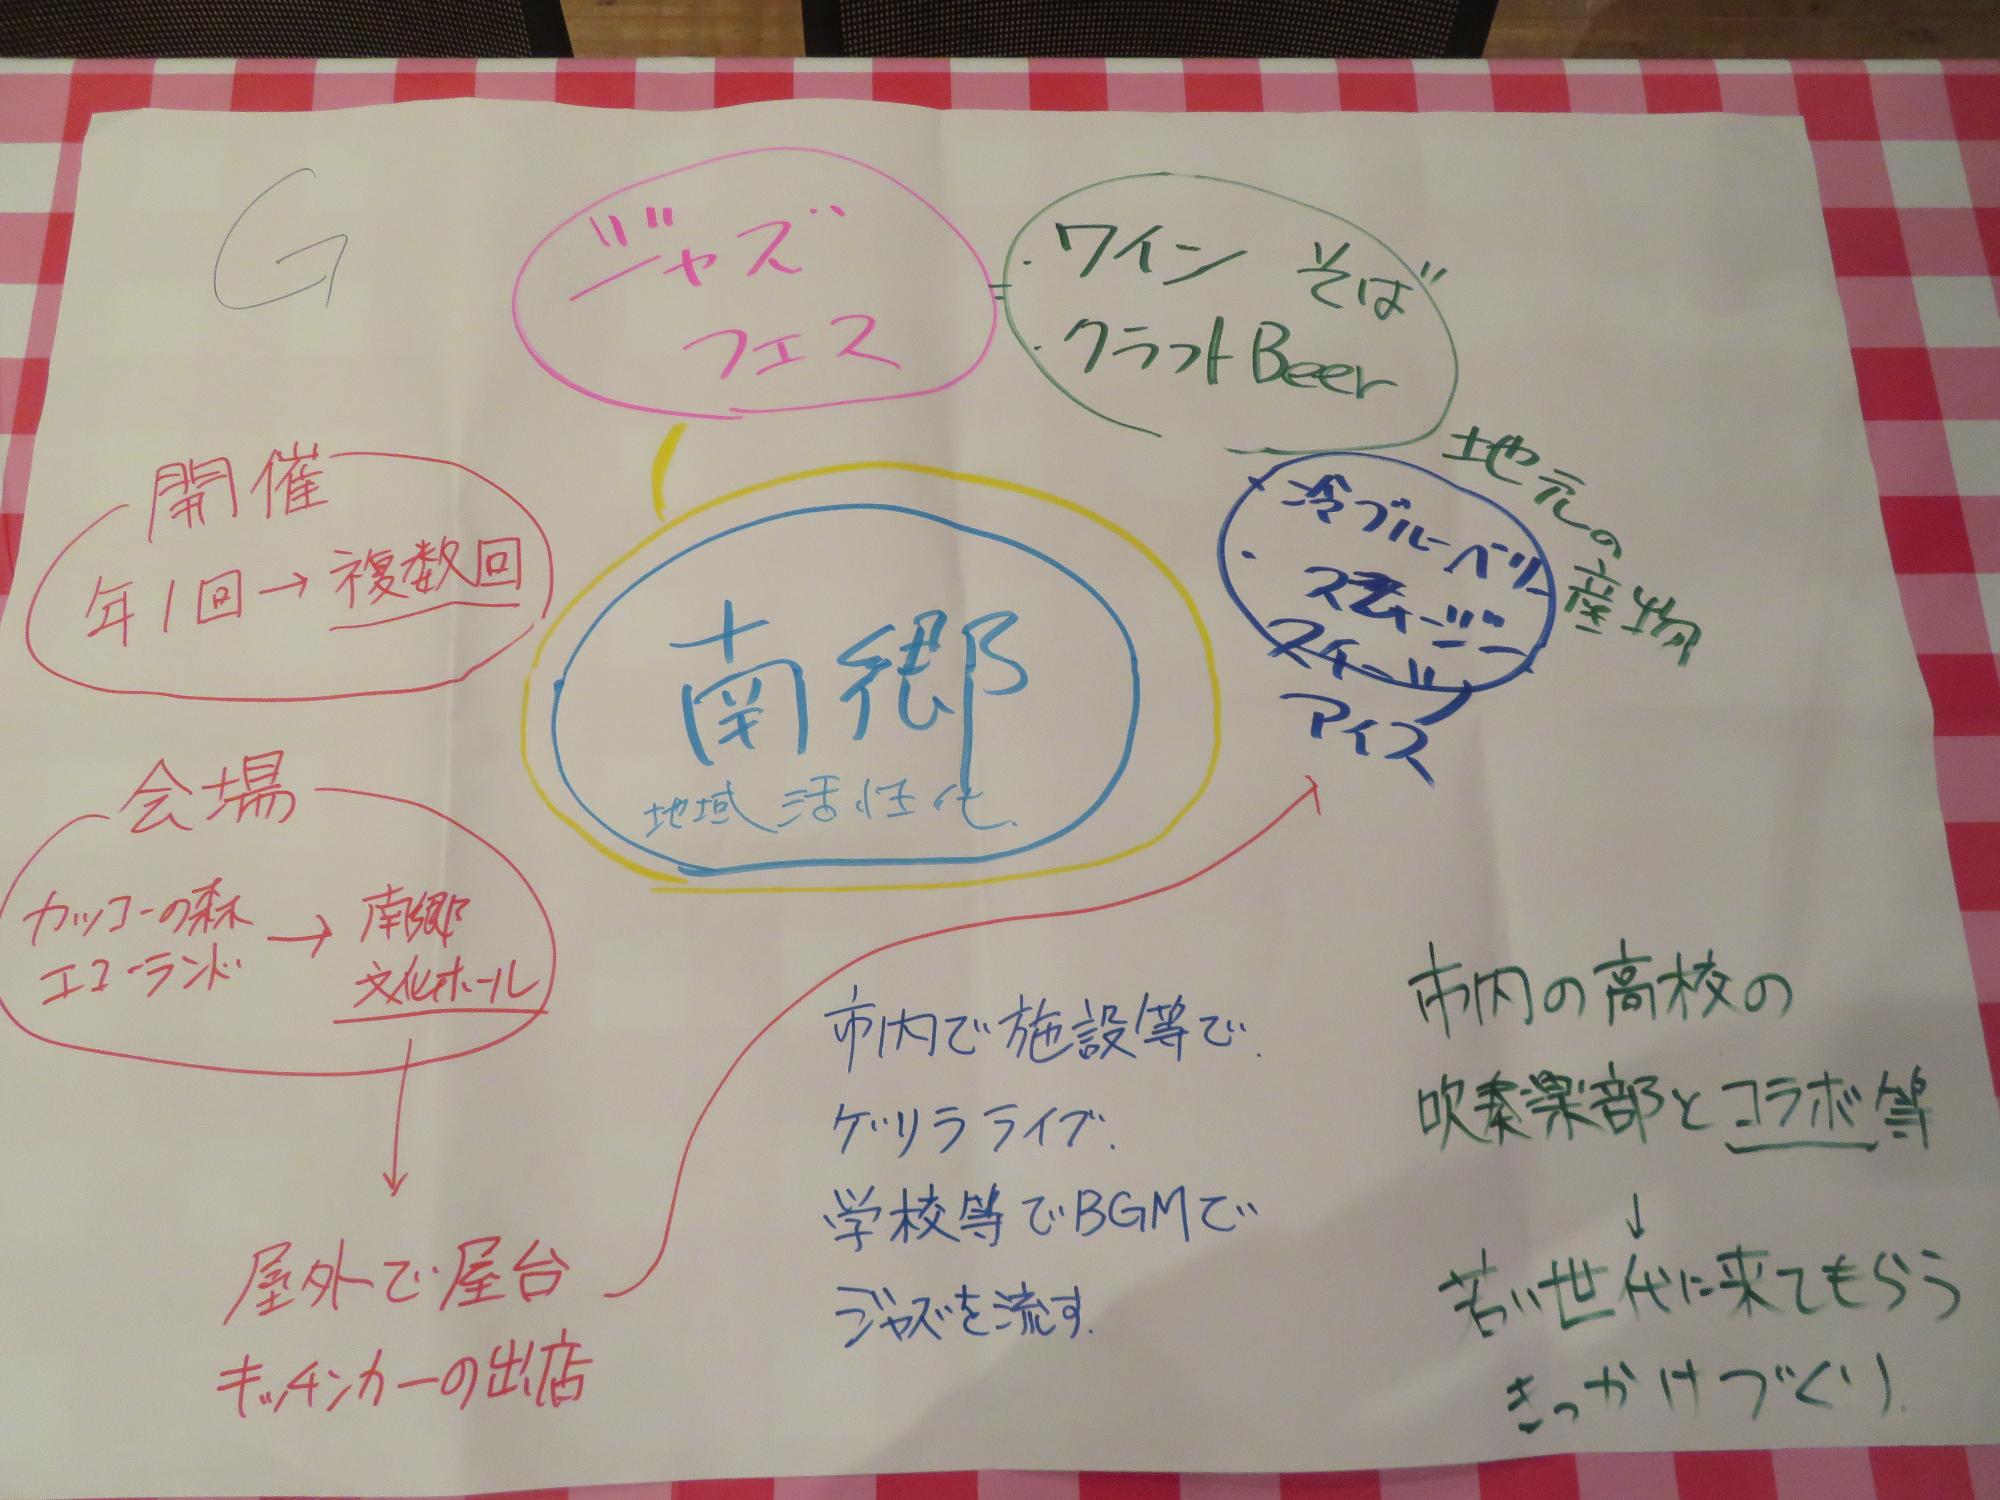 G
ジャズ
フェス
・ワイン そば
・クラフトBeer
地元の産物
・冷ブルーベリー
・スムージー
スイーツ
アイス
開催
年1回→複数回
南郷
地域活性化
会場
カッコーの森
エコーランド
→
南郷
文化ホール
屋外で屋台
キッチンカーの出店
市内で施設等で.
ゲリラライブ.
学校等でBGMで
ジャズを流す.
市内の高校の
吹奏楽部とコラボ等
↓
若い世代に来てもらう
きっかけづくり.